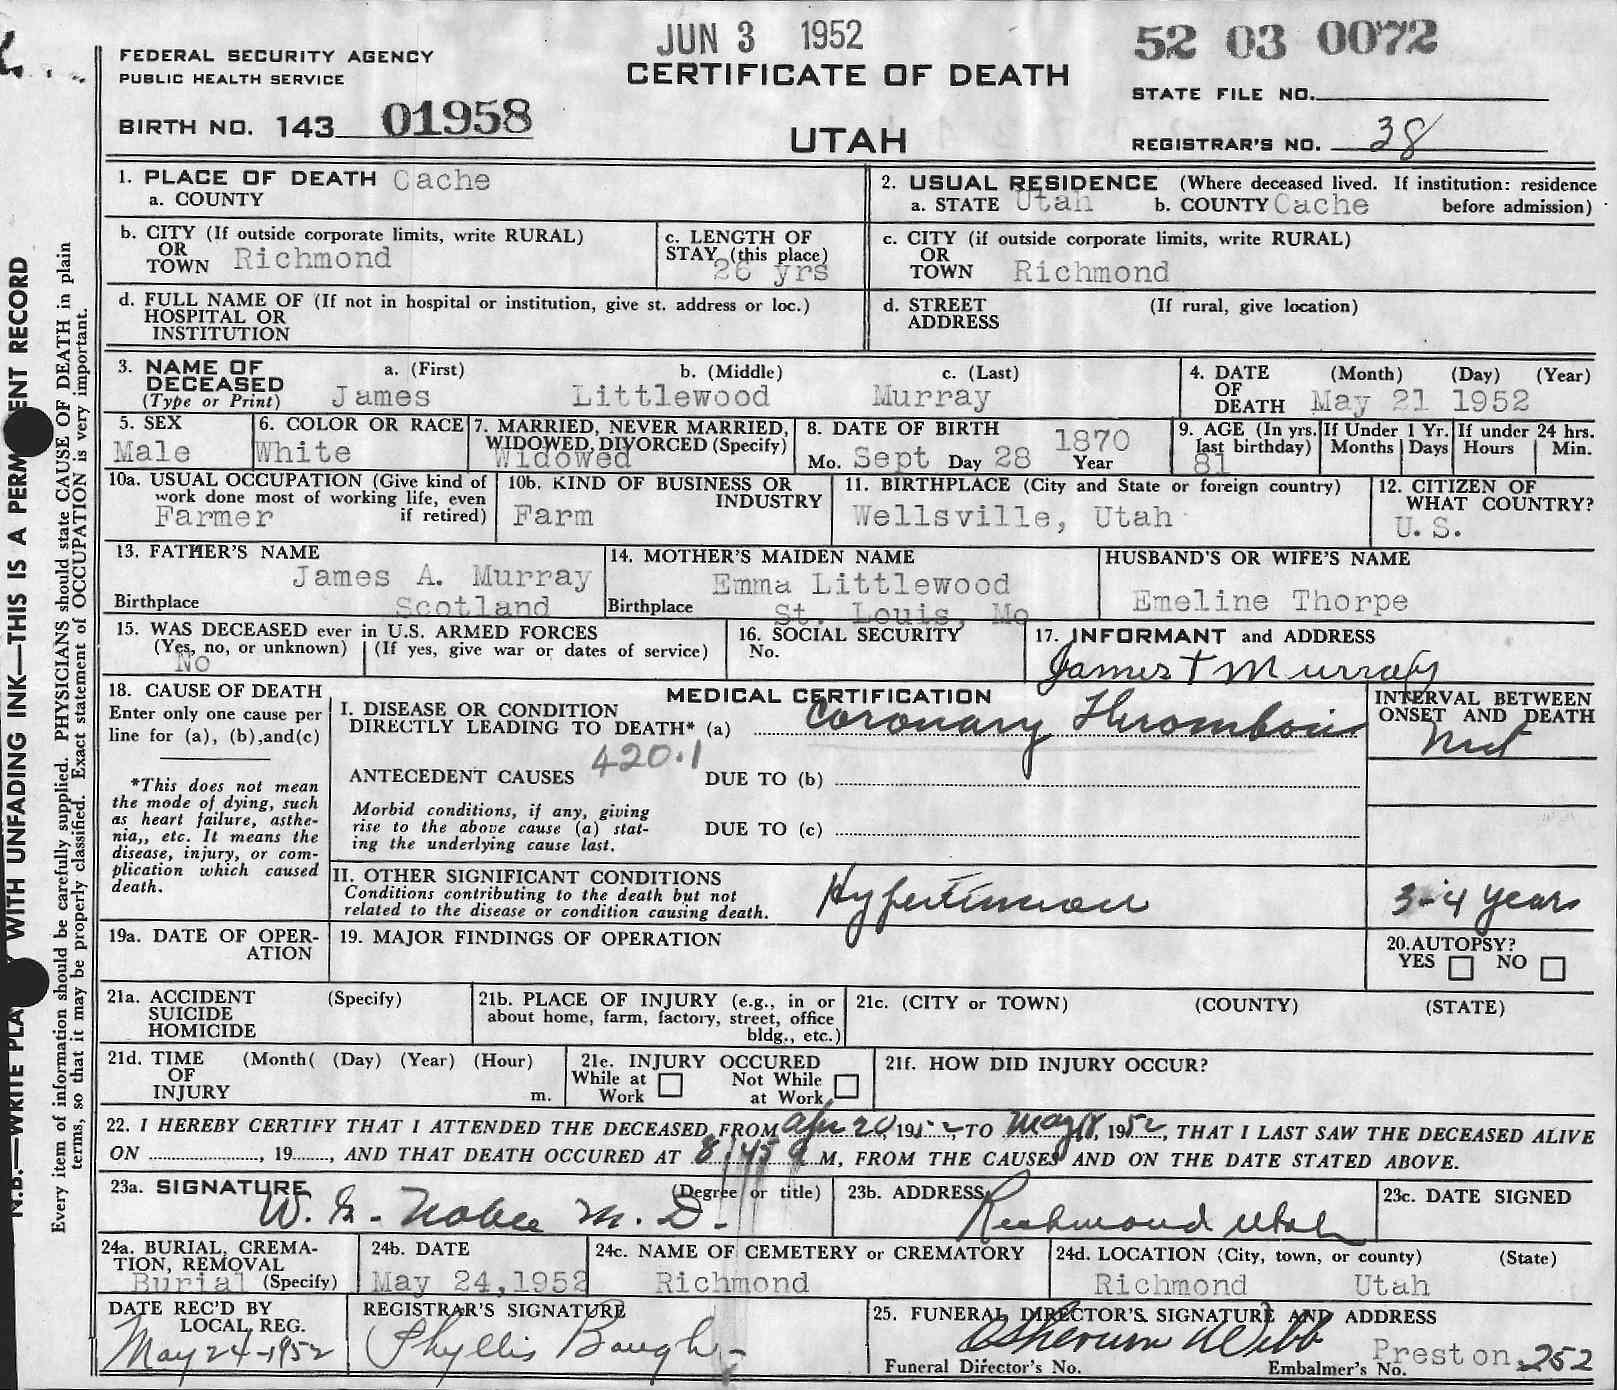 JUN 3 1952
52 03 0072
FEDERAL SECURITY AGENCY
PUBLIC HEALTH SERVICE
CERTIFICATE OF DEATH
STATE FILE NO.
BIRTH NO. 143 01958
UTAH
REGISTRAR'S NO. 38
N.B.—WRITE PLA WITH UNFADING INK—THIS IS A PERM ENT RECORD
Every item of information should be carefully supplied. PHYSICIANS should state CAUSE OF DEATH in plain
terms, so that it may be properly classified. Exact statement of OCCUPATION is very important.
1. PLACE OF DEATH Cache
a. COUNTY
2. USUAL RESIDENCE (Where deceased lived. If institution: residence
a. STATE Utah b. COUNTY Cache before admission)
b. CITY (If outside corporate limits, write RURAL)
OR
TOWN Richmond
c. LENGTH OF
STAY (this place)
26 yrs
c. CITY (if outside corporate limits, write RURAL)
OR
TOWN Richmond
d. FULL NAME OF (If not in hospital or institution, give st. address or loc.)
HOSPITAL OR
INSTITUTION
d. STREET (If rural, give location)
ADDRESS
3. NAME OF a. (First) b. (Middle) c. (Last)
DECEASED
(Type or Print) James Littlewood Murray
4. DATE (Month) (Day) (Year)
OF
DEATH May 21 1952
5. SEX
Male
6. COLOR OR RACE
White
7. MARRIED, NEVER MARRIED,
WIDOWED, DIVORCED (Specify)
Widowed
8. DATE OF BIRTH 1870
Mo. Sept Day 28 Year
9. AGE (In yrs.
last birthday)
81
If Under 1 Yr.
Months Days
If under 24 hrs.
Hours Min.
10a. USUAL OCCUPATION (Give kind of
work done most of working life, even
Farmer if retired)
10b. KIND OF BUSINESS OR
INDUSTRY
Farm
11. BIRTHPLACE (City and State or foreign country)
Wellsville, Utah
12. CITIZEN OF
WHAT COUNTRY?
U. S.
13. FATHER'S NAME
James A. Murray
Birthplace Scotland
14. MOTHER'S MAIDEN NAME
Emma Littlewood
Birthplace St. Louis, Mo
HUSBAND'S OR WIFE'S NAME
Emeline Thorpe
15. WAS DECEASED ever in U.S. ARMED FORCES
(Yes, no, or unknown) (If yes, give war or dates of service)
No
16. SOCIAL SECURITY
No.
17. INFORMANT and ADDRESS
James T Murray
18. CAUSE OF DEATH
Enter only one cause per
line for (a), (b),and(c)
*This does not mean
the mode of dying, such
as heart failure, asthe-
nia,, etc. It means the
disease, injury, or com-
plication which caused
death.
MEDICAL CERTIFICATION
I. DISEASE OR CONDITION
DIRECTLY LEADING TO DEATH* (a) Coronary Thrombosis
420.1
ANTECEDENT CAUSES DUE TO (b)
Morbid conditions, if any, giving
rise to the above cause (a) stat-
ing the underlying cause last.
DUE TO (c)
INTERVAL BETWEEN
ONSET AND DEATH
II. OTHER SIGNIFICANT CONDITIONS
Conditions contributing to the death but not
related to the disease or condition causing death.
Hypertension
3-4 years
19a. DATE OF OPER-
ATION
19. MAJOR FINDINGS OF OPERATION
20.AUTOPSY?
YES NO
21a. ACCIDENT (Specify)
SUICIDE
HOMICIDE
21b. PLACE OF INJURY (e.g., in or
about home, farm, factory, street, office
bldg., etc.)
21c. (CITY or TOWN) (COUNTY) (STATE)
21d. TIME (Month( (Day) (Year) (Hour)
OF
INJURY m.
21e. INJURY OCCURED
While at Work Not While at Work
21f. HOW DID INJURY OCCUR?
22. I HEREBY CERTIFY THAT I ATTENDED THE DECEASED FROM Apr 20, 1952, TO May 18, 1952, THAT I LAST SAW THE DECEASED ALIVE
ON , 19 , AND THAT DEATH OCCURED AT 8:45 M, FROM THE CAUSES AND ON THE DATE STATED ABOVE.
23a. SIGNATURE (Degree or title)
W. M. D.
23b. ADDRESS
Richmond Utah
23c. DATE SIGNED
24a. BURIAL, CREMA-
TION, REMOVAL
Burial (Specify)
24b. DATE
May 24,1952
24c. NAME OF CEMETERY or CREMATORY
Richmond
24d. LOCATION (City, town, or county) (State)
Richmond Utah
DATE REC'D BY
LOCAL REG.
May 24-1952
REGISTRAR'S SIGNATURE
Phyllis Baugh
25. FUNERAL DIRECTOR'S SIGNATURE AND ADDRESS
Webb
Funeral Director's No. Embalmer's No. Preston 252